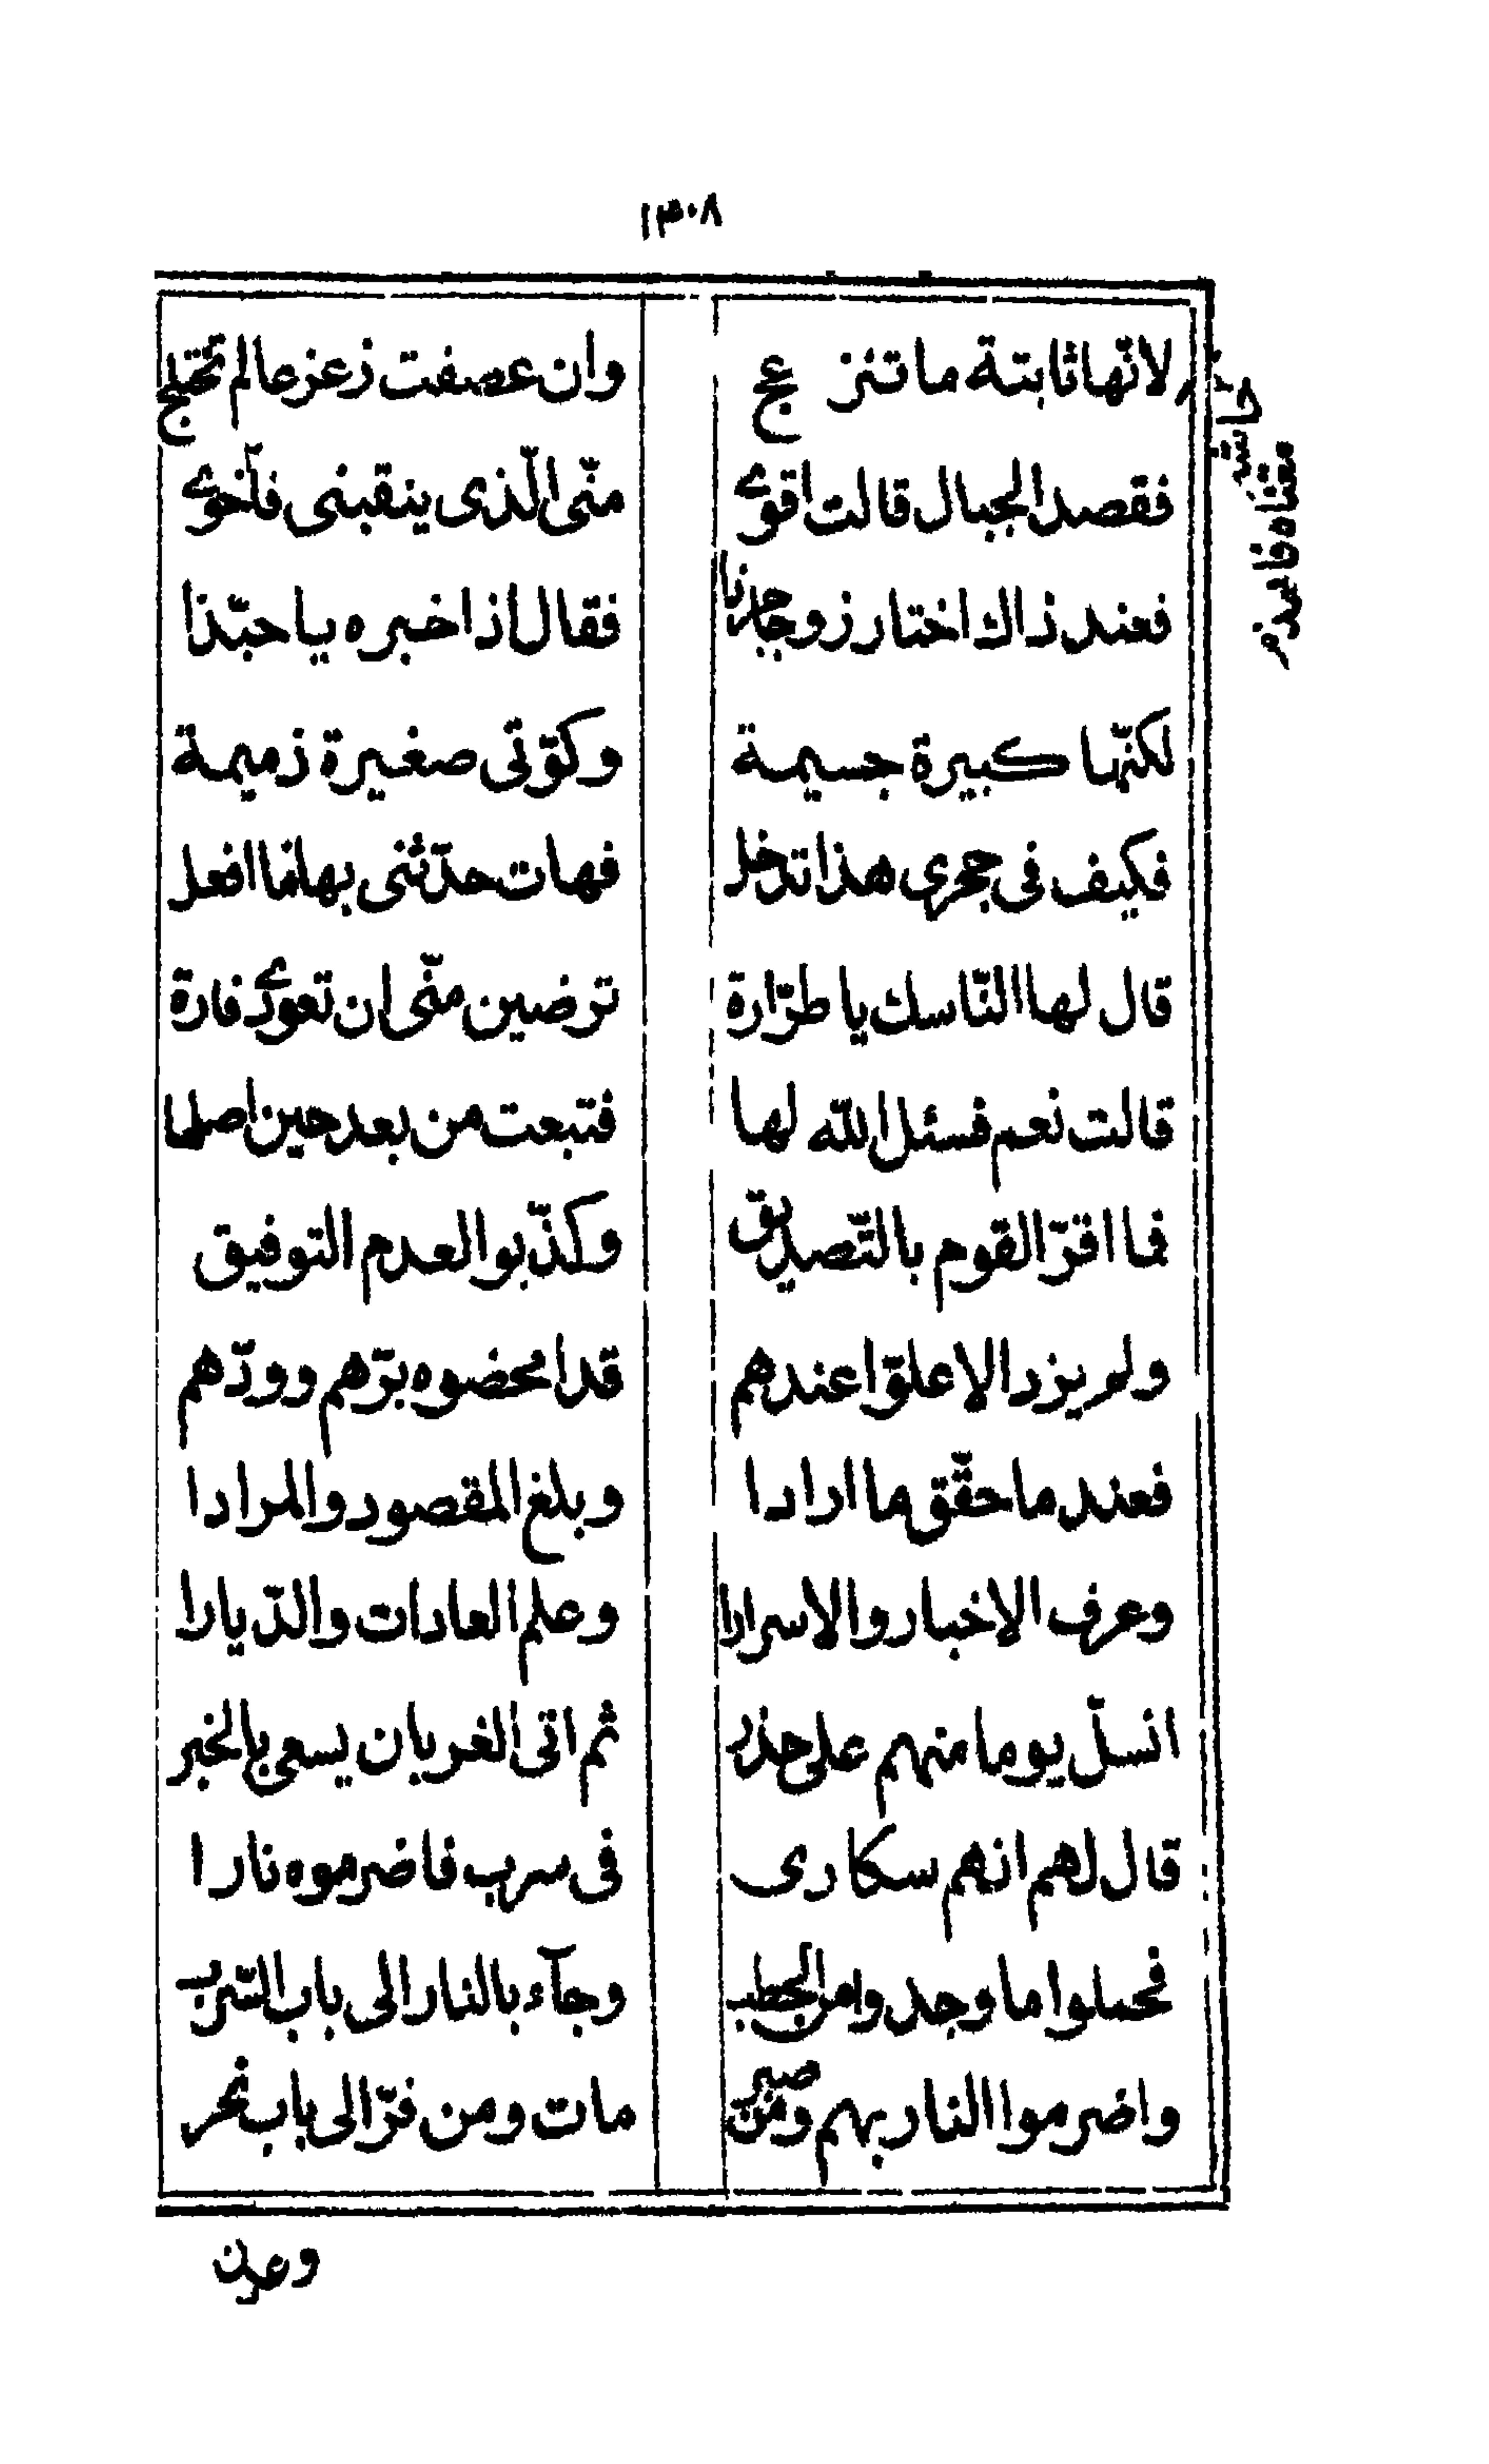 ١٣٠٨
لانّها ثابتة ما تنزعج وان عصفت زعزعا لم تختلج
فقصد الجبال قالت اقوى منّى الّذى ينقبنى فلّخوى
فعند ذاك اختار زوجا جرذا فقال اذ اخبره يا حبّذا
لكنّها كبيرة جسيمة وكوّتى صغيرة ذميمة
فكيف فى جحرى هذا تدخل فهات حدّثنى بها ما افعل
قال لها النّاسك يا طرّارة ترضين منّى ان تعودى فارة
قالت نعم فسئل الله لها فتبعت من بعد حين اصلها
فما اقرّ القوم بالتّصديق وكذّبوا لعدم التوفيق
ولم يزد الا علوّا عندهم قد امحضوه برّهم وودّهم
فعند ما حقّق ما ارادا وبلغ المقصود والمرادا
وعرف الاخبار والاسرارا وعلم العادات والدّيارا
انسلّ يوما منهم على حذر ثم اتى الغربان يسعى بالخبر
قال لهم انهم سكارى فى سرب فاضرموه نارا
فحملوا ما وجدوا من الحطب وجآء بالنار الى باب السّرب
واضرموا النار بهم ومن صبر مات ومن فرّ الى باب نحر